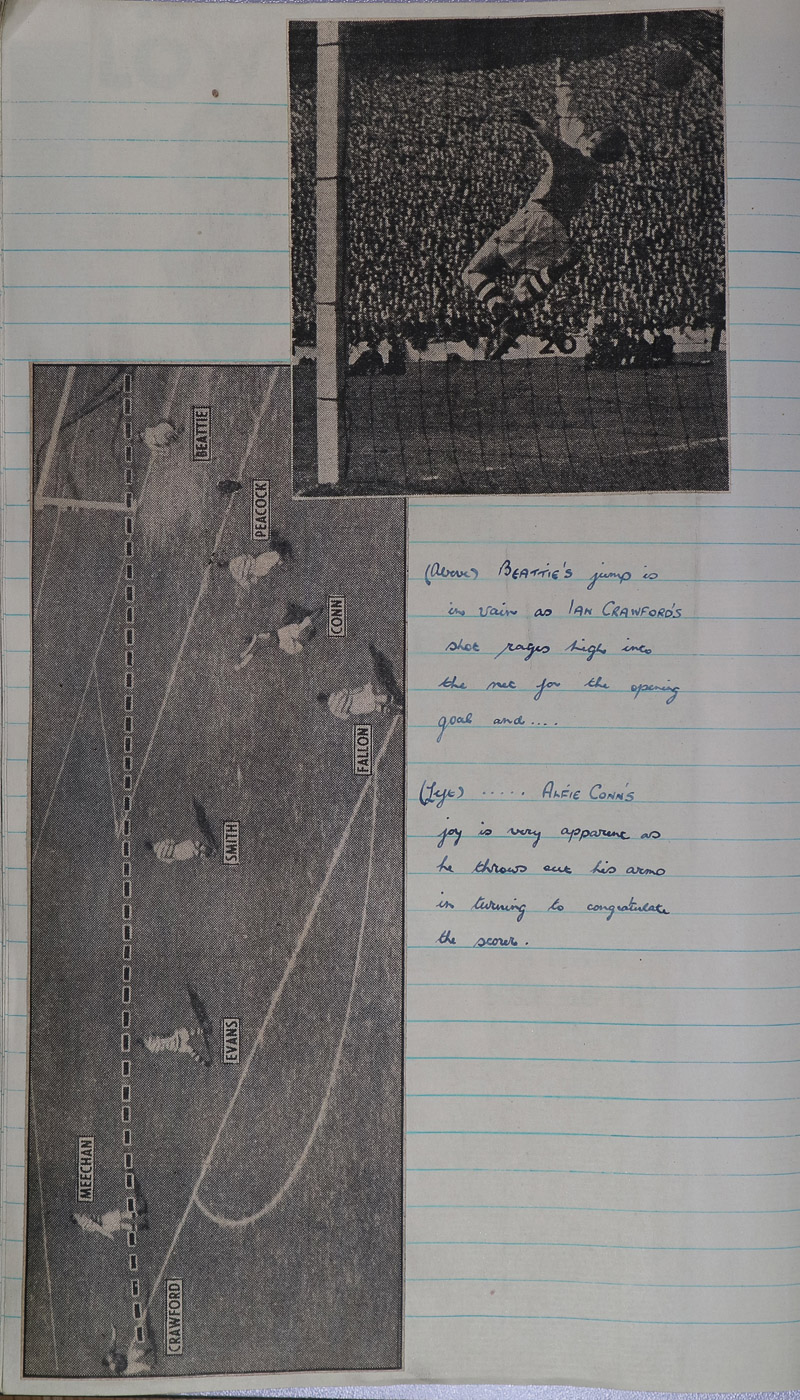 20
BEATTIE
PEACOCK
CONN
FALLON
SMITH
EVANS
MEECHAN
CRAWFORD
(Above) BEATTIE'S jump is
in vain as IAN CRAWFORD'S
shot rages high into
the net for the opening
goal and ....
(Left) ..... ALFIE CONN'S
joy is very apparent as
he throws out his arms
in turning to congratulate
the scorer.